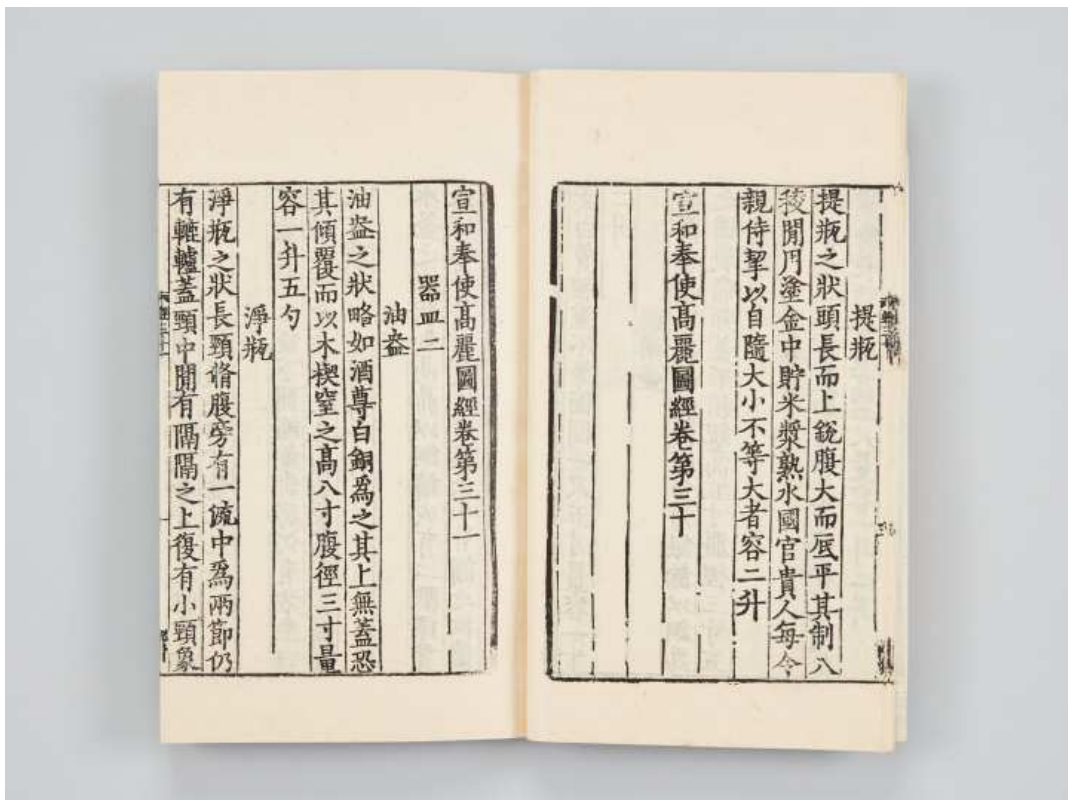 提瓶
提瓶之狀頭長而上銳腹大而底平其制八
稜閒用塗金中貯米漿熟水國官貴人每令
親侍挈以自隨大小不等大者容二升
宣和奉使高麗圖經卷第三十
宣和奉使高麗圖經卷第三十一
器皿二
油盎
油盎之狀略如酒尊白銅爲之其上無蓋恐
其傾覆而以木楔窒之高八寸腹徑三寸量
容一升五勺
淨瓶
淨瓶之狀長頸脩腹旁有一流中爲兩節仍
有轆轤蓋頸中閒有隔隔之上復有小頸象